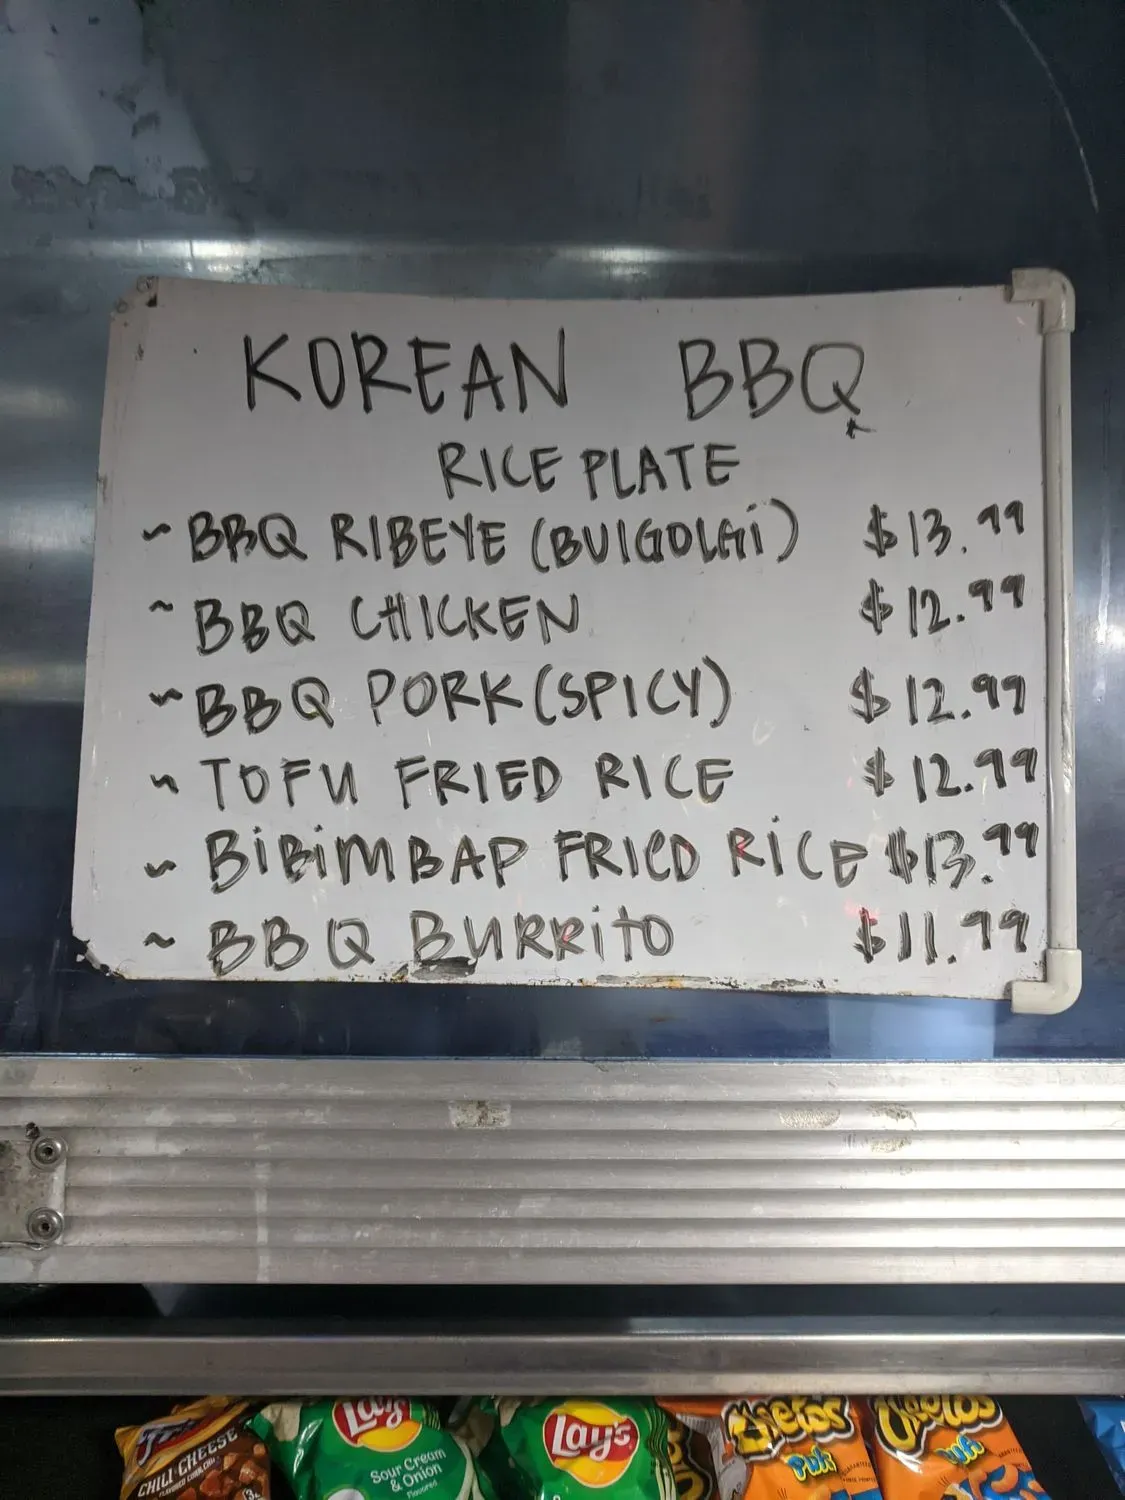 KOREAN BBQ
RICE PLATE
~ BBQ RIBEYE (BULGOLGi) $13.99
~ BBQ CHICKEN $12.99
~ BBQ PORK (SPICY) $12.99
~ TOFU FRIED RICE $12.99
~ BiBiMBAP FRIED RiCE $13.99
~ BBQ BURRiTO $11.99
CHILI CHEESE
Lay's
Sour Cream
& Onion
Flavored
Lay's
Cheetos
Puffs
Cheetos